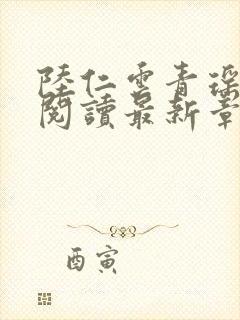 陸仁雲青瑶
閱讀最新章
酉寅